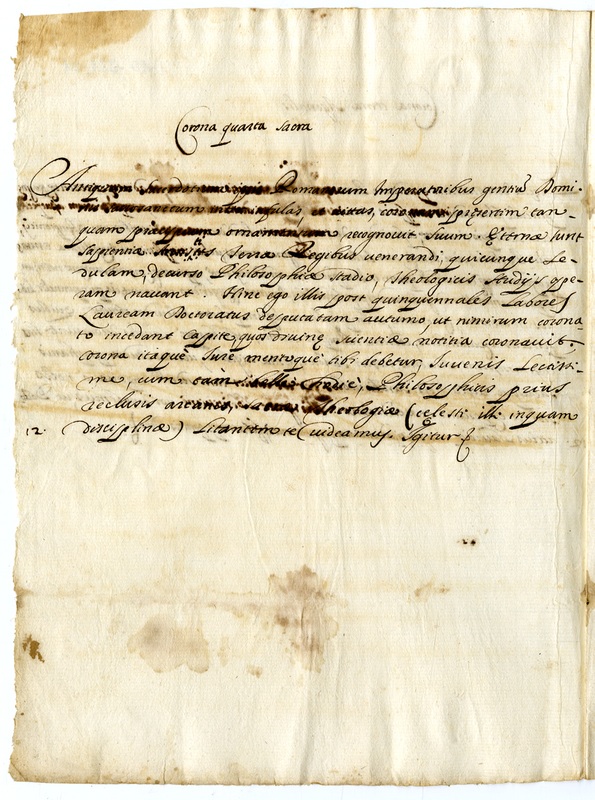 Corona quarta sacra
Romanorum Imperatoribus gentiū Domi-
coronam pręsertim tan-
quam ornamentum recognovit suum. Æternæ sunt
sapientiæ Terræ Regibus venerandi, quicunque se-
dulam, decurso Philosophiæ stadio, Theologicis Studijs ope-
ram navant. Hinc ego illis post quinquennales Labores
Lauream Doctoratus desputatam autumo, ut nimirum corona-
to incedant Capite, quos divinę scientiæ notitia coronavit.
Corona itaquè Jure meritoquè tibi debetur Juvenis Lectissi-
me, cum hodie, Philosophicis prius
reclusis arcanis, Sacræ Theologiæ (cęlesti illi inquam
12. disciplinæ) Litantem te videamus. Igitur &